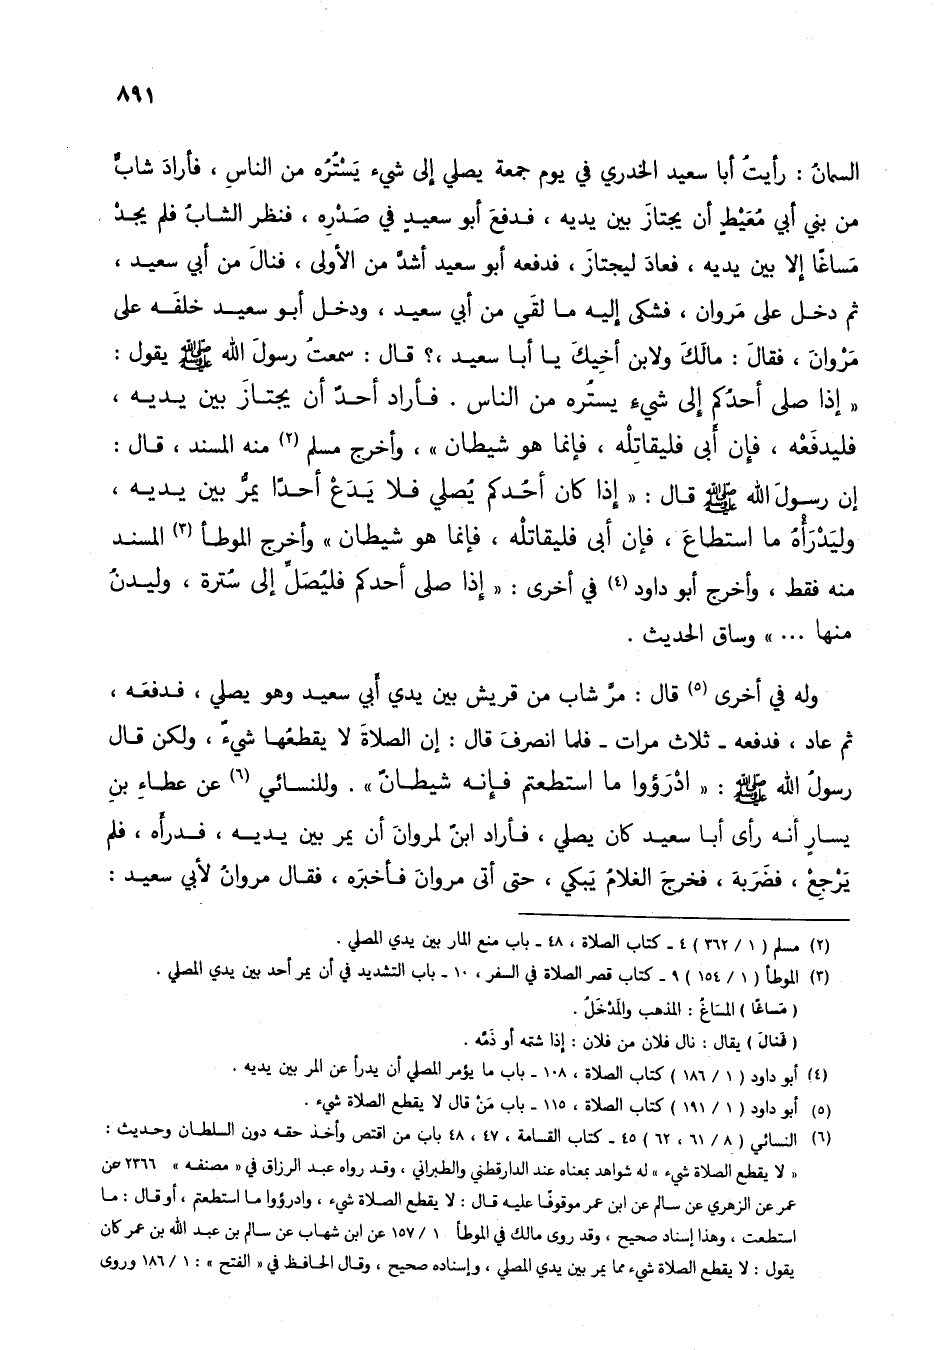 ٨٩١
السمانُ : رأيتُ أبا سعيد الخدري في يوم جمعة يصلي إلى شيء يَسْتُرُه من الناسِ ، فأرادَ شابٌّ
من بني أبي مُعَيْطٍ أن يجتازَ بين يديه ، فدفعَ أبو سعيدٍ في صَدْرِه ، فنظر الشابُ فلم يجدْ
مَساغًا إلا بين يديه ، فعادَ ليجتازَ ، فدفعه أبو سعيد أشدَّ من الأولى ، فنالَ من أبي سعيد ،
ثم دخل على مَروان ، فشكى إليه ما لقَي من أبي سعيد ، ودخل أبو سعيد خلفَه على
مَرْوانَ ، فقالَ : مالَكَ ولابن أخيكَ يا أبا سعيد ،؟ قال : سمعتُ رسولَ الله ﷺ يقول :
« إذا صلى أحدُكم إلى شيء يستُره من الناس . فأراد أحدٌ أن يجتازَ بين يديه ،
فليدفَعْه ، فإن أَبى فليقاتِلْه ، فإنما هو شيطان » ، وأخرج مسلم (٢) منه المسند ، قال :
إن رسولَ الله ﷺ قال : « إذا كان أحُدكم يُصلي فلا يَدَعْ أحدًا يمرُّ بين يديه ،
وليَدْرَأْهُ ما استطاعَ ، فإن أبى فليقاتلْه ، فإنما هو شيطان » وأخرج الموطأ (٣) المسند
منه فقط ، وأخرج أبو داود (٤) في أخرى : « إذا صلى أحدكم فليُصَلِّ إلى سُترة ، وليدنُ
منها ... » وساق الحديث .
وله في أخرى (٥) قال : مرَّ شاب من قريش بين يدي أَبي سعيد وهو يصلي ، فدفعَه ،
ثم عاد ، فدفعه ـ ثلاث مرات ـ فلما انصرفَ قال : إن الصلاةَ لا يقطعُها شيءٌ ، ولكن قال
رسولُ الله ﷺ : « ادْرَؤوا ما استطعتم فإنه شيطانٌ » . وللنسائي (٦) عن عطاءِ بنِ
يسارٍ أنه رأى أبا سعيد كان يصلي ، فأراد ابنٌ لمروانَ أن يمر بين يديه ، فدرأَه ، فلم
يَرْجِعْ ، فضَرَبهَ ، فخرجَ الغلامُ يَبكي ، حتى أتى مروانَ فأخبرَه ، فقال مروانُ لأبي سعيد :
(٢) مسلم ( ١ / ٣٦٢ ) ٤ ـ كتاب الصلاة ، ٤٨ ـ باب منع المار بين يدي المصلي .
(٣) الموطأ ( ١ / ١٥٤ ) ٩ ـ كتاب قصر الصلاة في السفر ، ١٠ ـ باب التشديد في أن يمر أحد بين يدي المصلي .
( مَساغًا ) المسَاغُ : المذهب والمَدْخَلُ .
( فَنالَ ) يقال : نال فلان من فلان : إذا شتمه أو ذَمَّه .
(٤) أبو داود ( ١ / ١٨٦ ) كتاب الصلاة ، ١٠٨ ـ باب ما يؤمر المصلي أن يدرأ عن المر بين يديه .
(٥) أبو داود ( ١ / ١٩١ ) كتاب الصلاة ، ١١٥ ـ باب مَنْ قال لا يقطع الصلاة شيء .
(٦) النسائي ( ٨ / ٦١ ، ٦٢ ) ٤٥ ـ كتاب القسامة ، ٤٧ ، ٤٨ باب من اقتص وأخذ حقه دون السلطان وحديث :
« لا يقطع الصلاة شيء » له شواهد بمعناه عند الدارقطني والطبراني ، وقد رواه عبد الرزاق في « مصنفه » ٢٣٦٦ عن
عمر عن الزهري عن سالم عن ابن عمر موقوفًا عليه قال : لا يقطع الصلاة شيء ، وادرؤوا ما استطعتم ، أو قال : ما
استطعت ، وهذا إسناد صحيح ، وقد روى مالك في الموطأ ١ / ١٥٧ عن ابن شهاب عن سالم بن عبد الله بن عمر كان
يقول : لا يقطع الصلاة شيء مما يمر بين يدي المصلي ، وإسناده صحيح ، وقال الحافظ في « الفتح » : ١ / ١٨٦ وروى